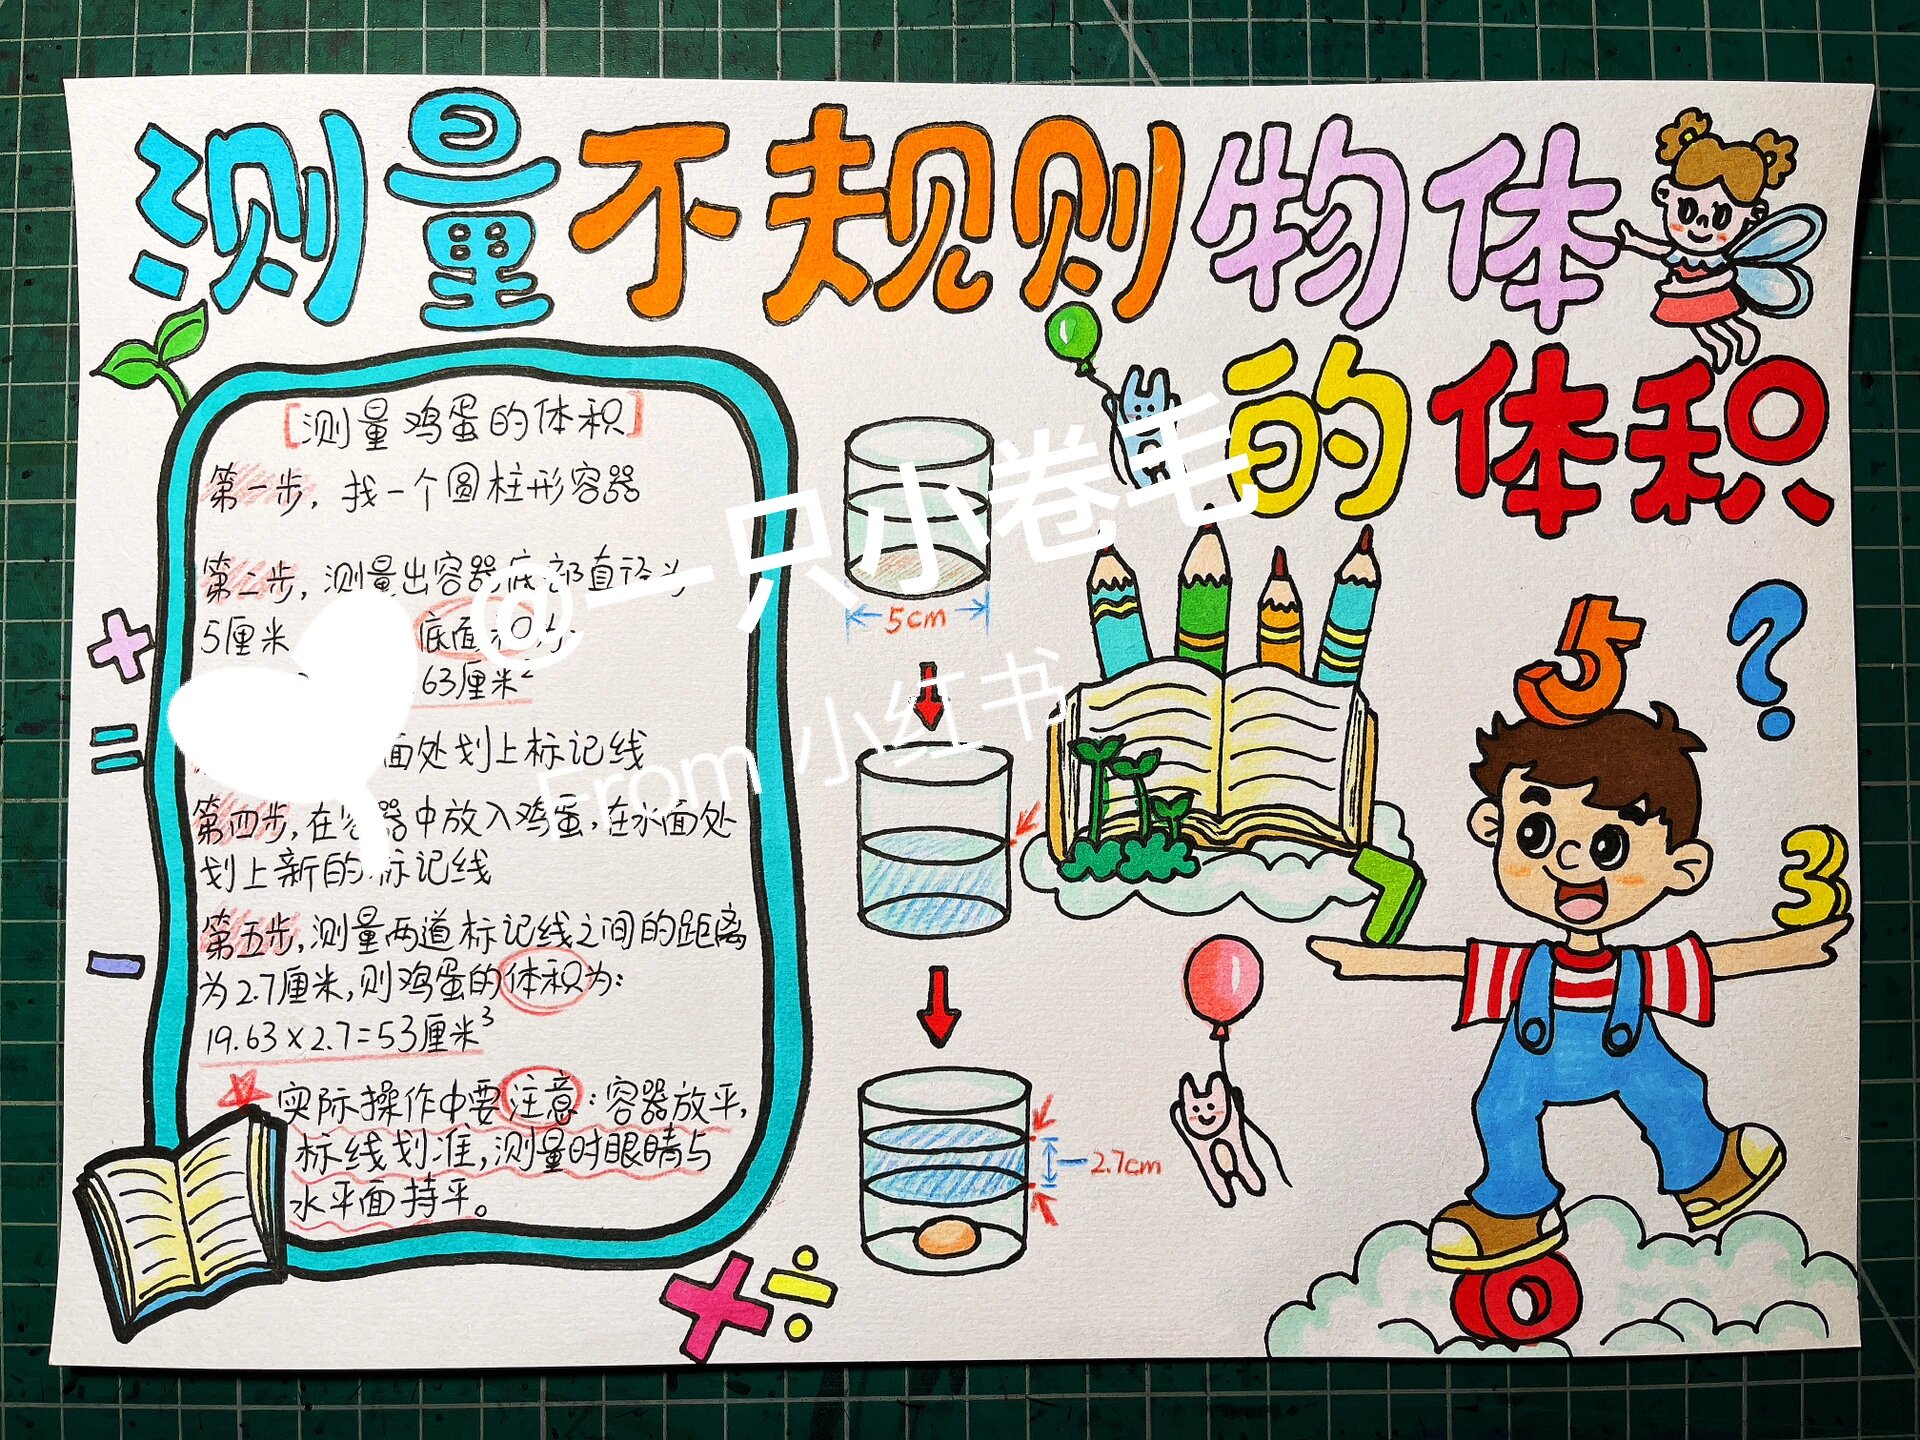 测量不规则物体
的体积
[测量鸡蛋的体积]
第一步，找一个圆柱形容器
第二步，测量出容器底部直径为
5厘米 底面积为:
63厘米²
面处划上标记线
第四步，在容器中放入鸡蛋，在水面处
划上新的标记线
第五步，测量两道标记线之间的距离
为2.7厘米，则鸡蛋的体积为:
19.63×2.7=53厘米³
实际操作中要注意:容器放平，
标线划准，测量时眼睛与
水平面持平。
5cm
2.7cm
5
?
3
7
0
+
=
-
×
÷
@一只小卷毛
From 小红书